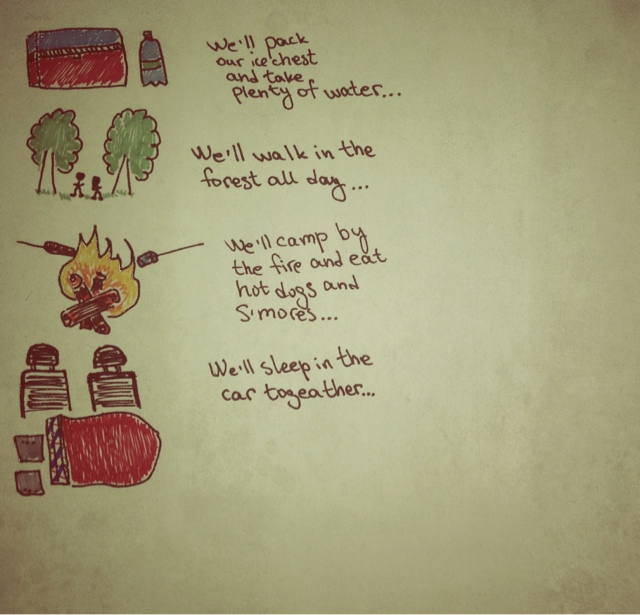 We'll pack
our ice chest
and take
plenty of water...
We'll walk in the
forest all day...
We'll camp by
the fire and eat
hot dogs and
S'mores...
We'll sleep in the
car togeather...